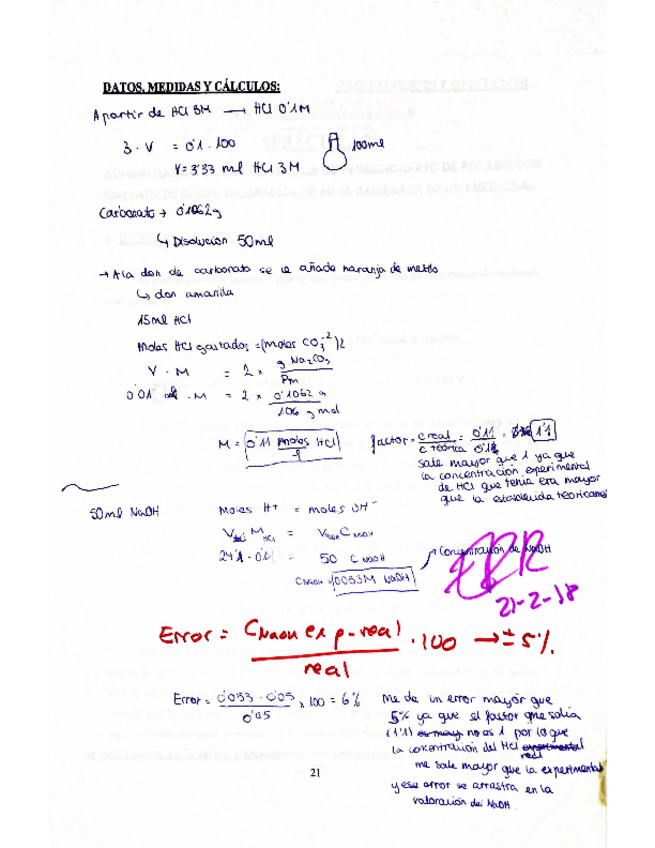 DATOS, MEDIDAS Y CÁLCULOS:
A partir de HCl 3M → HCl 0'1M
3 · V = 0'1 · 100
100ml
V = 3'33 ml HCl 3M
Carbonato → 0'1062g
↳ Disolución 50ml
→ A la don de carbonato se le añade naranja de metilo
↳ don amarilla
15ml HCl
Moles HCl gastados = (moles CO₃⁻²) 2
V · M = 2 × g Na₂CO₃ / Pm
0'01 · M = 2 × 0'1062 g / 106 g mol
M = 0'11 moles HCl / l
factor = C real / C teórica = 0'11 / 0'1 = 1'1
sale mayor que 1 ya que
la concentración experimental
de HCl que tenía era mayor
que la establecida teoricame
50ml NaOH
Moles H+ = moles OH⁻
M HCl = V NaOH C NaOH
24'1 · 0'11 = 50 · C NaOH
C NaOH = 0'053M NaOH
→ Concentración de NaOH
21-2-18
Error = C NaOH exp - real / real · 100 → ± 5%
Error = 0'053 - 0'05 / 0'05 × 100 = 6%
Me da un error mayor que
5% ya que el factor que salía
(1'1) no es 1 por lo que
la concentración del HCl experimental
real
me sale mayor que la experimental
y ese error se arrastra en la
valoración del NaOH.
21